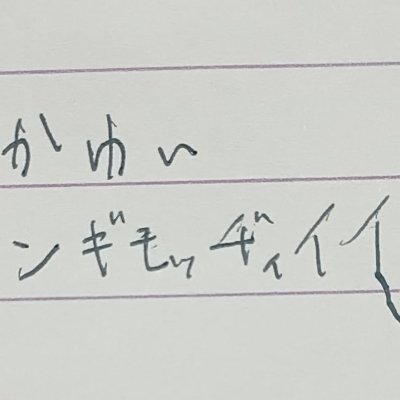 かゆい
ンギモッヂィイイ